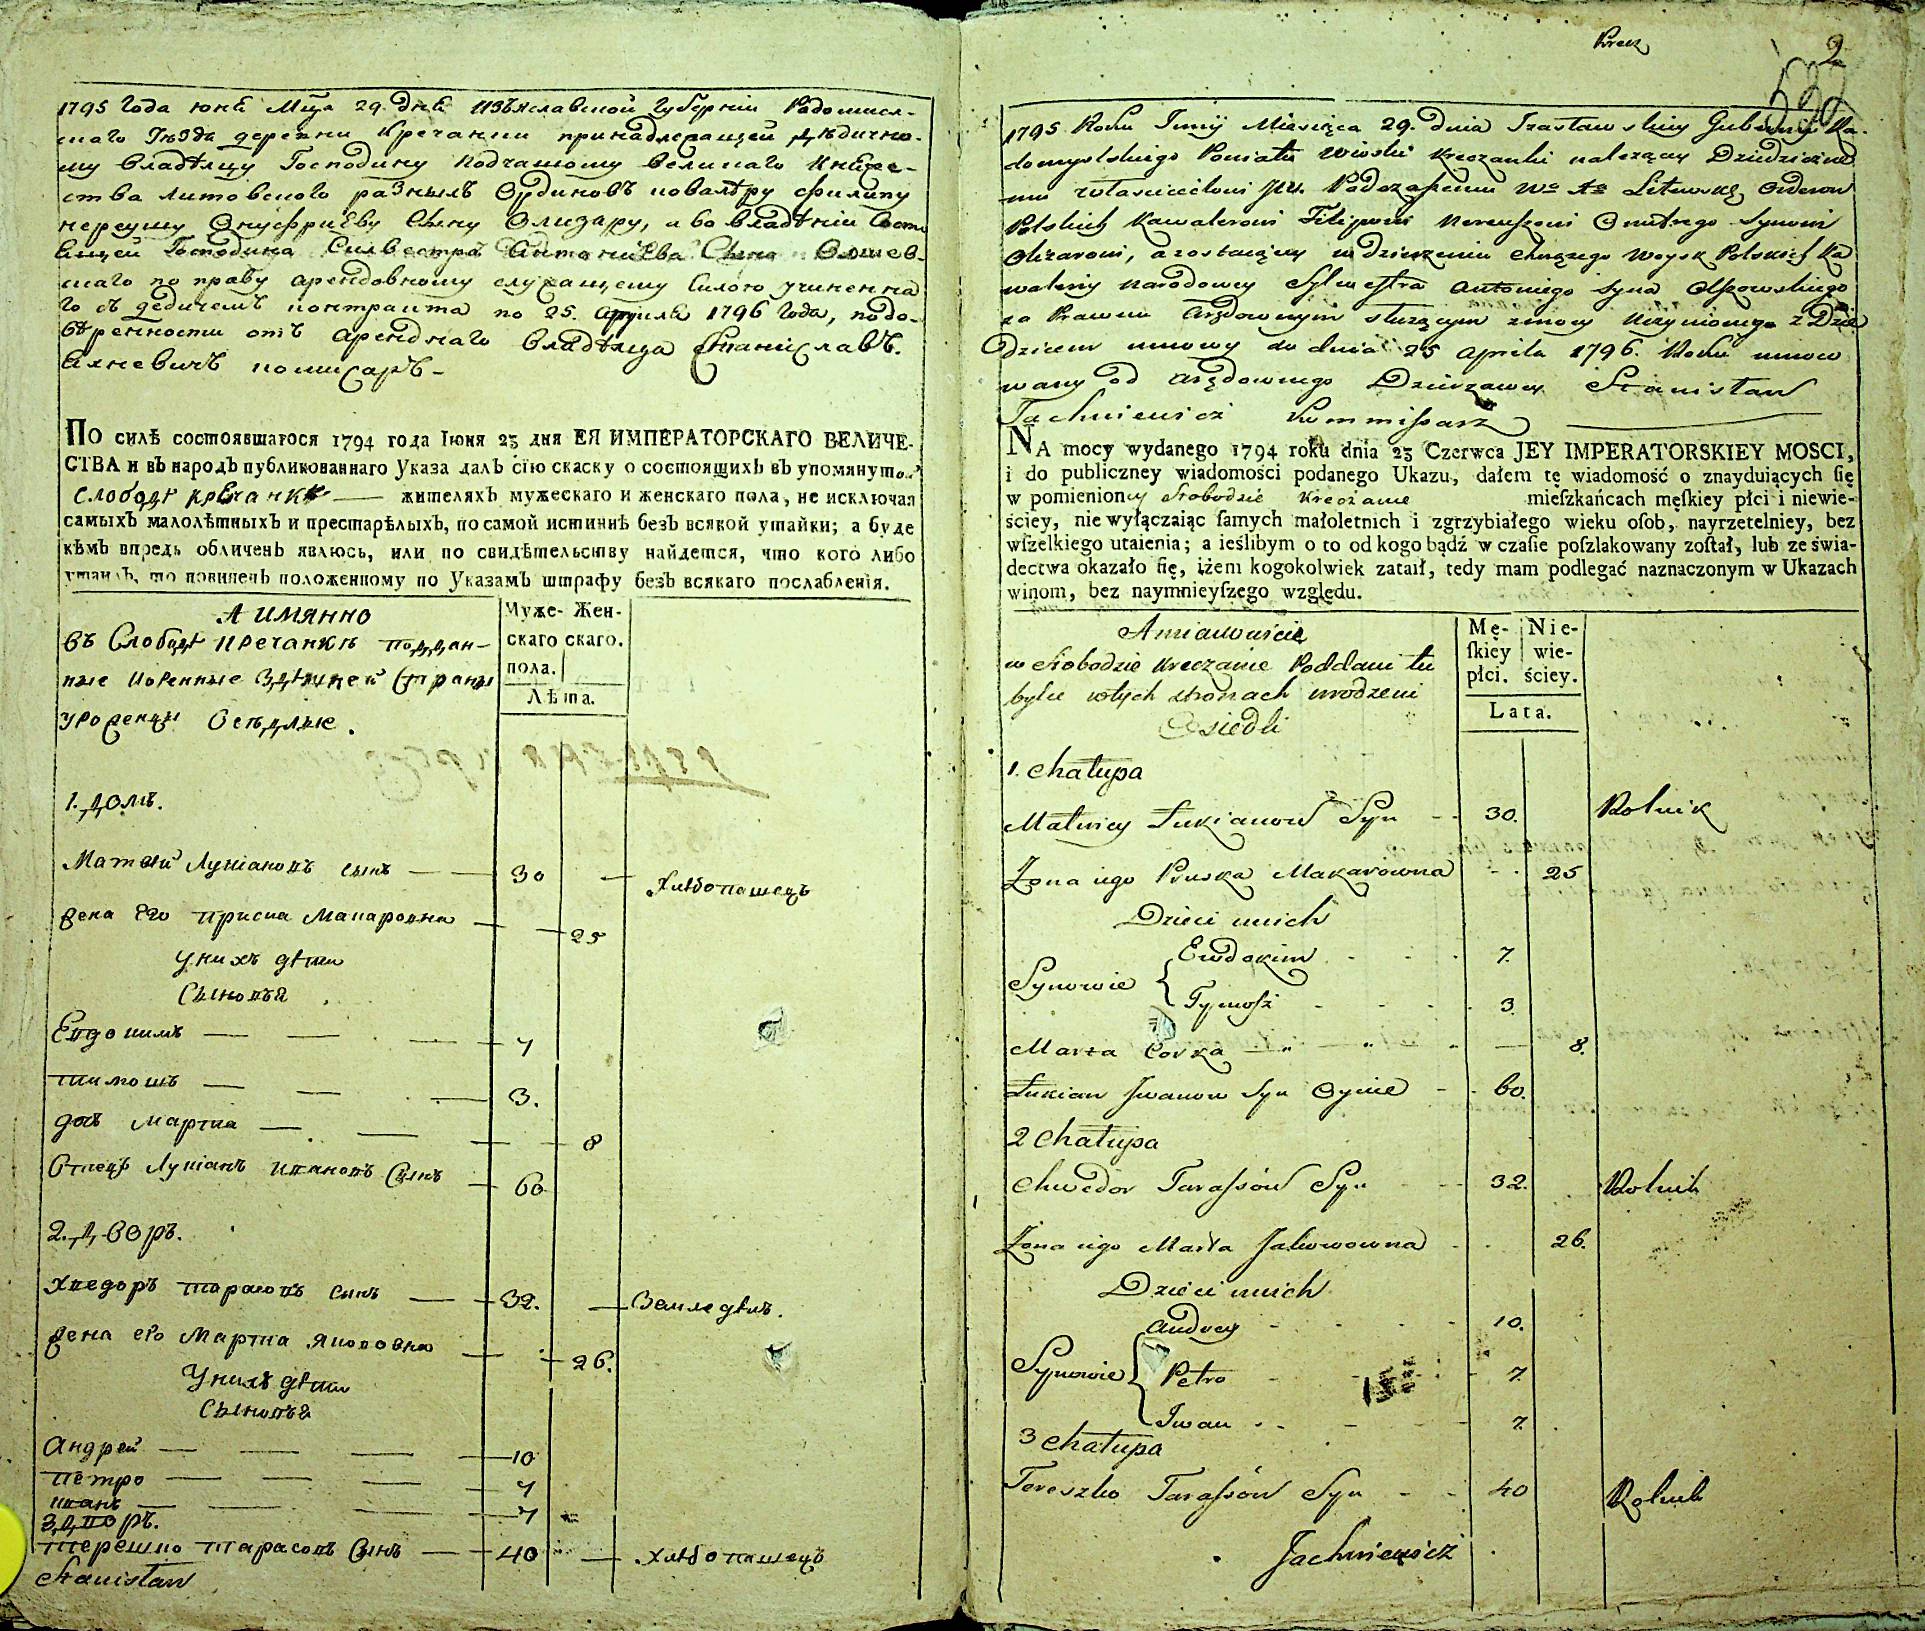 1795 года юнѣ Мца 29. дня Изъяславской губернiи Радомисл-
скаго деревни Кречанки принадлежащей дѣдично-
му владѣлцу Господину подчашому великаго княже-
ства литовского разныхъ Ординовъ кавалѣру филипу
нереушу Онуфриеву сыну Олизару, а во владѣнiи состо
ящей Господина Силвестра Антонiева Сына
скаго по праву арендовному слухащему силою учиненна
го съ дедичемъ контракта по 25. априля 1796 года, по до-
вѣренности отъ аренднаго владѣлца Станiславъ.
Яхневичъ комисаръ-
По силѣ состоявшагося 1794 года Iюня 23 дня ЕЯ ИМПЕРАТОРСКАГО ВЕЛИЧЕ-
СТВА и въ народъ публикованнаго Указа далъ сïю скаску о состоящихъ въ упомянутой
слободѣ кречанкѣ жителяхъ мужескаго и женскаго пола, не исключая
самыхъ малолѣтныхъ и престарѣлыхъ, по самой истиннѣ безъ всякой утайки; а буде
кѣмъ впредь обличенъ явлюсь, или по свидѣтельству найдется, что кого либо
утаилъ, то повиненъ положенному по Указамъ штрафу безъ всякаго послабленïя.
А имянно
въ Слободѣ Кречанкѣ поддан-
ные коренные здѣшней страны
уроженцы Осѣдлые.
Муже- Жен-
скаго скаго.
пола.
Лѣта.
1. домъ.
Матвей Лукiановъ сынъ 30 Хлѣбопашецъ
жена Его Приска Макаровна 25
у нихъ дѣти
Сыновъя
Евдокимъ 7
тимошъ 3.
дочь марта 8
Отецъ Лукiанъ ивановъ Сынъ 60
2. дворъ.
Хведоръ тарасовъ сынъ 32. Земледѣлъ.
жена его Марта якововна 26.
У нихъ дѣти
Сыновъя
Андрей 10
петро 7
иванъ 7
3. дворъ.
терешко тарасовъ Сынъ 40 Хлѣбопашецъ
Stanisław
2
532
1795 Roku Junij Miesiąca 29. dnia Izasławskiey Gubernij Ra-
domyslskiego Powiatu wioski Kreczanki należącey Dziedziczne
mu właścicielowi JW. Podczaszemu Wo Xo Litewskie Orderow
Polskich Kawalerowi Filipowi Nereuszowi Onufrego Synowi
Olizarowi, a zostaiącey w dzierżeniu Chorązego Woysk Polskich Ka
waleriy Narodowey Sylwestra Antoniego Syna Olszowskiego
za Prawem Arędownym służącym zmocy uczynionego z Dzie
dzicem umowy do dnia 25 Aprila 1796. Roku umoco
wany od Arędownego Dzierżawcy Stanisław
Jachniewicz Kommissarz
Na mocy wydanego 1794 roku dnia 23 Czerwca JEY IMPERATORSKIEY MOSCI,
i do publiczney wiadomości podanego Ukazu, dałem tę wiadomość o znayduiących ſię
w pomienioney Słobodzie Kreczance mieſzkańcach męſkiey płci i niewie-
ściey, nie wyłączaiąc ſamych małoletnich i zgrzybiałego wieku oſob, nayrzetelniey, bez
wſzelkiego utaienia; a ieślibym o to od kogo bądź w czaſie poſzlakowany zoſtał, lub ze świa-
dectwa okazało ſię, iżem kogokolwiek zataił, tedy mam podlegać naznaczonym w Ukazach
winom, bez naymnieyſzego względu.
A mianowicie
w Słobodzie Kreczance Poddani tu
byłce w tych stronach urodzeni
Osiedli
Mę- Nie-
ſkiey wie-
płci. ściey.
Lata.
1. Chałupa
Matwiey Łukianow Syn 30. Rolnik
Żona iego Pruska Makarowna 25
Dzieci u nich
Synowie
Ewdokim 7.
Tymosz 3.
Marta Corka 8.
Łukian Iwanow Syn Oyciec 60.
2 Chałupa
Chwedor Tarassów Syn 32. Rolnik
Żona iego Marta Jakowowna 26.
Dzieci u nich
Synowie
Andrey 10.
Petro 7.
Iwan 7.
3 Chałupa
Tereszko Tarassów Syn 40 Rolnik
Jachniewicz